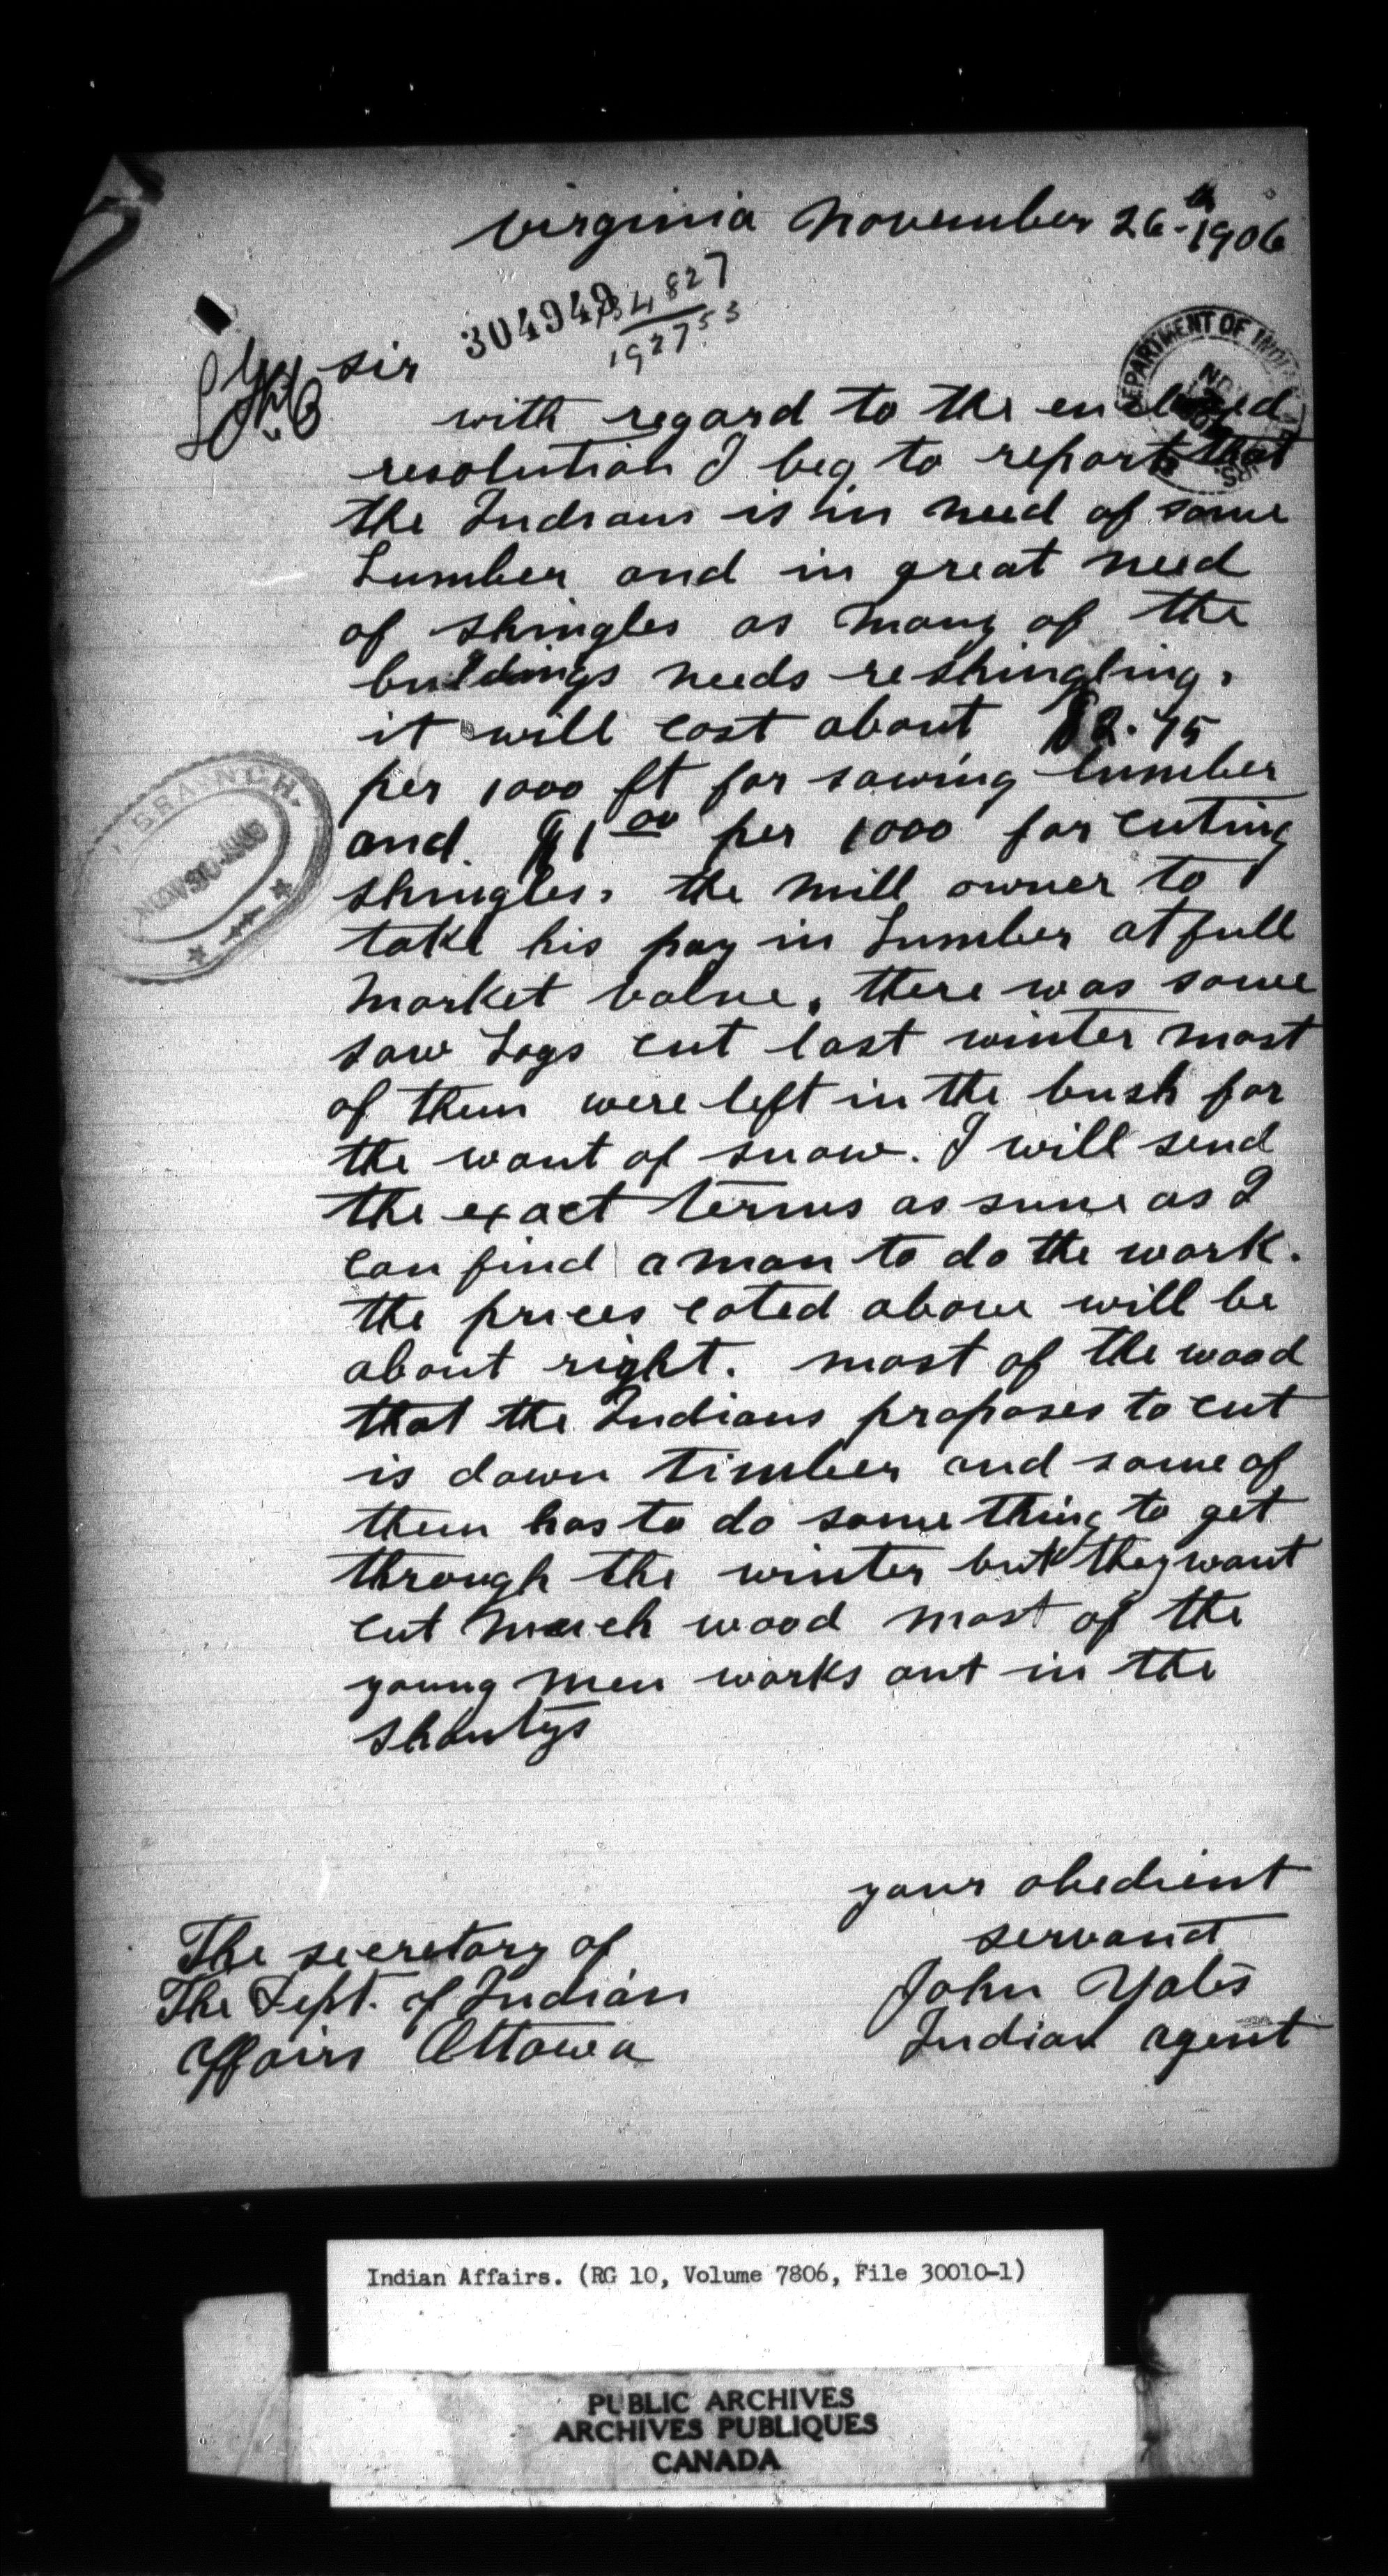 Virginia November 26th 1906
304949
34827
192753
sir
with regard to the enclosed
resolution I beg to report that
the Indians is in need of some
Lumber and in great need
of shingles as many of the
buildings needs reshingling,
it will cost about $2.75
per 1000 ft for sawing lumber
and $1 00 per 1000 for cuting
shingles, the mill owner to
take his pay in Lumber at full
market value, there was some
saw Logs cut last winter most
of them were left in the bush for
the want of snow. I will send
the exact terms as sune as I
can find a man to do the work.
the prices coted above will be
about right. most of the wood
that the Indians proposes to cut
is down timber and some of
them has to do some thing to get
through the winter but they want
cut much wood most of the
young men works out in the
shantys
your obedient
servant
John Yates
Indian agent
The secretary of
The Dept. of Indian
Affairs Ottawa
DEPARTMENT OF INDIAN AFFAIRS.
NOV
BRANCH.
NOV 30 1906
Indian Affairs. (RG 10, Volume 7806, File 30010-1)
PUBLIC ARCHIVES
ARCHIVES PUBLIQUES
CANADA